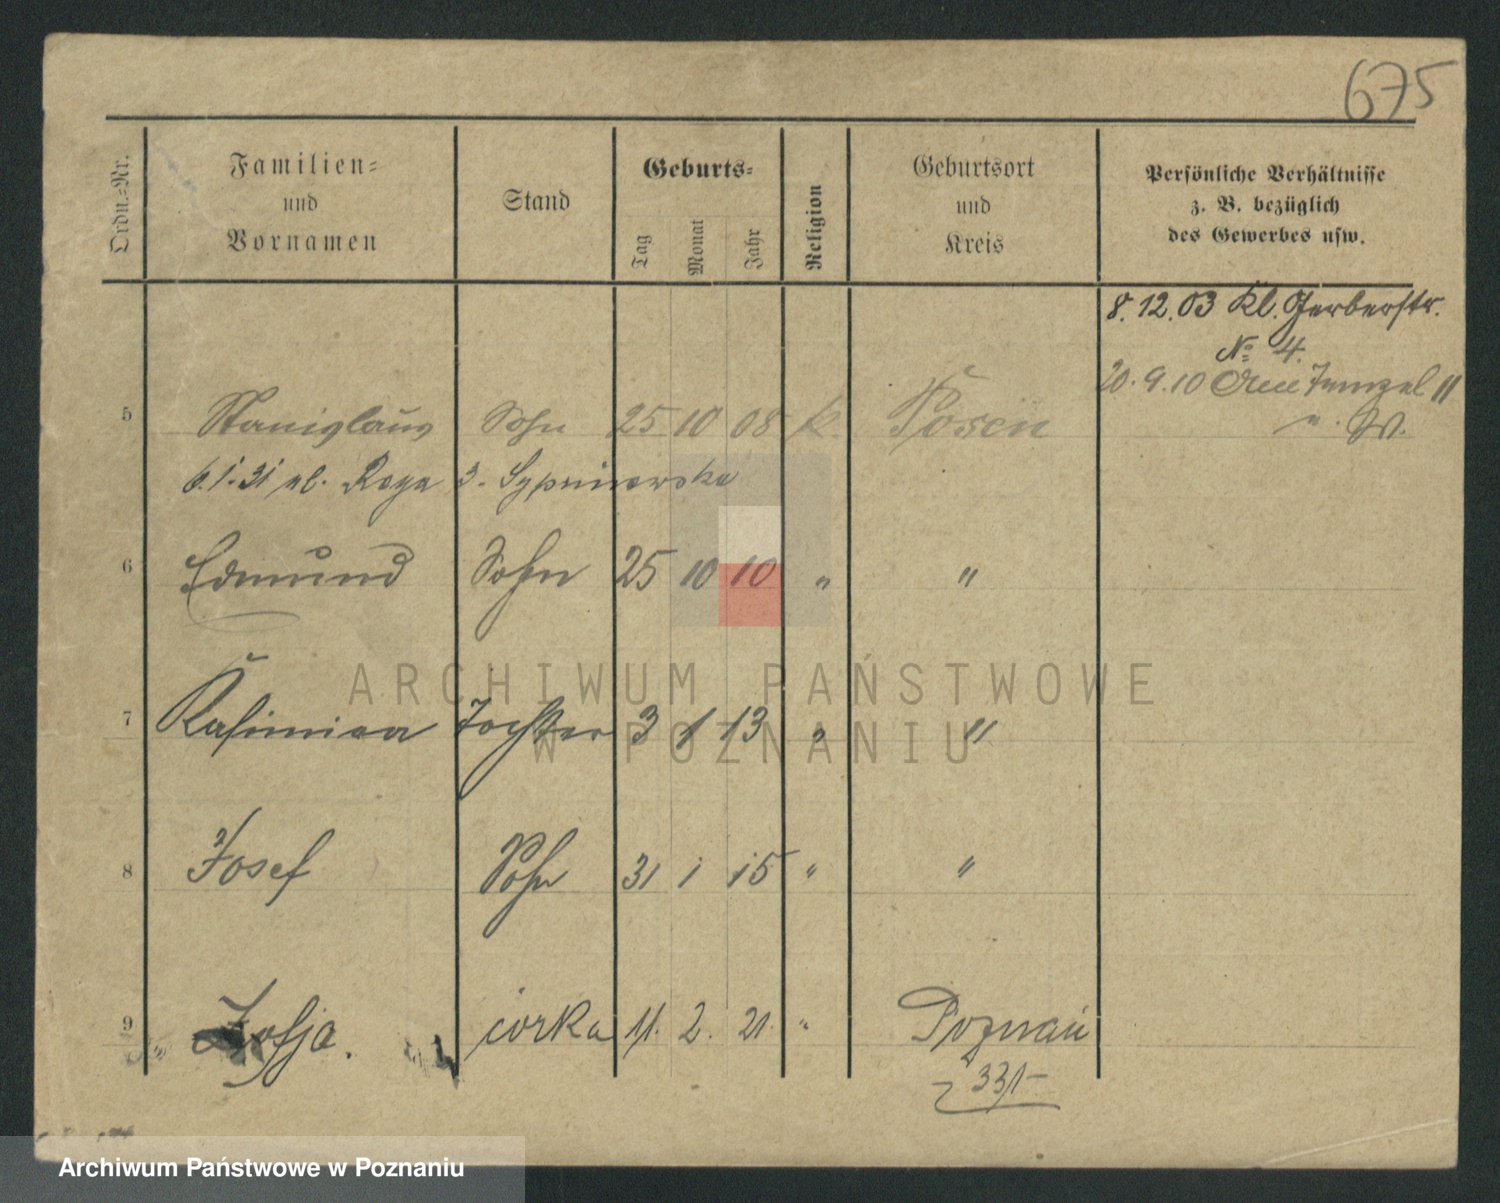 675
Ordn.-Nr.
Familien-
und
Vornamen
Stand
Geburts-
Tag
Monat
Jahr
Religion
Geburtsort
und
Kreis
Persönliche Verhältnisse
z. B. bezüglich
des Gewerbes usw.
8. 12. 03 Kl. Gerberstr.
No 4.
20. 9. 10 11
" W.
5 Stanislaus Sohn 25 10 08 k. Posen
6. 1. 31 ul. 3. Sypniewska
6 Edmund Sohn 25 10 10 " "
7 Kasimira Tochter 3 1 13 " "
8 Josef Sohn 31 1 15 " "
9 Zofja. córka 11. 2. 21. " Poznań
331-
ARCHIWUM PAŃSTWOWE
W POZNANIU
Archiwum Państwowe w Poznaniu